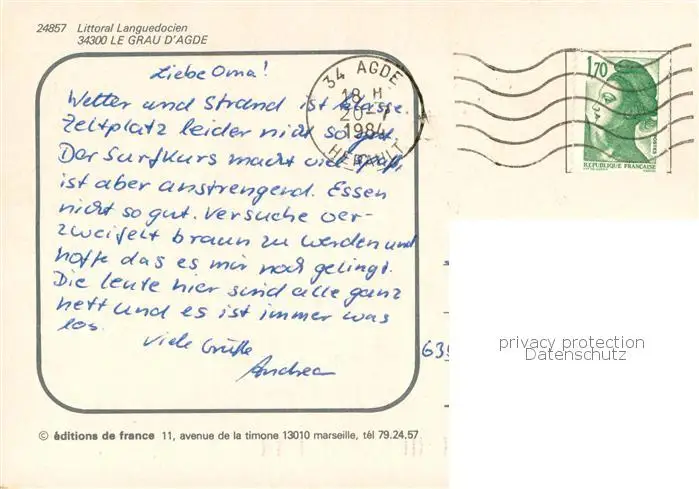 24857 Littoral Languedocien
34300 LE GRAU D'AGDE
Liebe Oma!
Wetter und Strand ist klasse.
Zeltplatz leider nicht so gut.
Der Surfkurs macht viel Spaß,
ist aber anstrengend. Essen
nicht so gut. Versuche ver-
zweifelt braun zu werden und
hoffe das es mir noch gelingt.
Die Leute hier sind alle ganz
nett und es ist immer was
los.
Viele Grüße
Andrea
34 AGDE
18 H
20-7
1984
HERAULT
1,70
POSTES
REPUBLIQUE FRANÇAISE
privacy protection
Datenschutz
© éditions de france 11, avenue de la timone 13010 marseille, tél 79.24.57